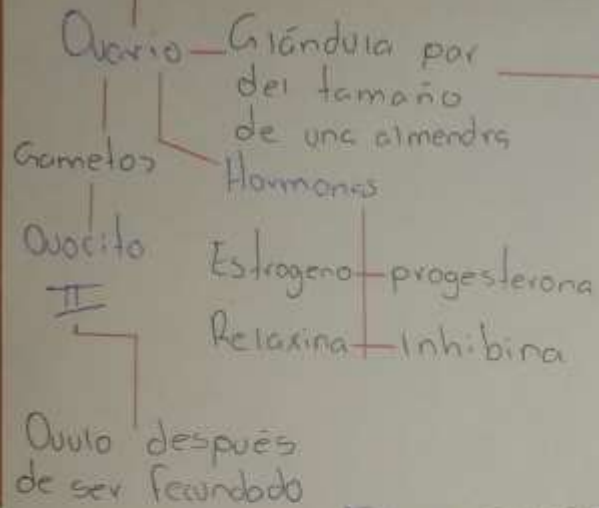 Ovario
Glándula par
del tamaño
de una almendra
Gametos
Hormonas
Ovocito
II
Estrogeno progesterona
Relaxina Inhibina
Ovulo después
de ser fecundado